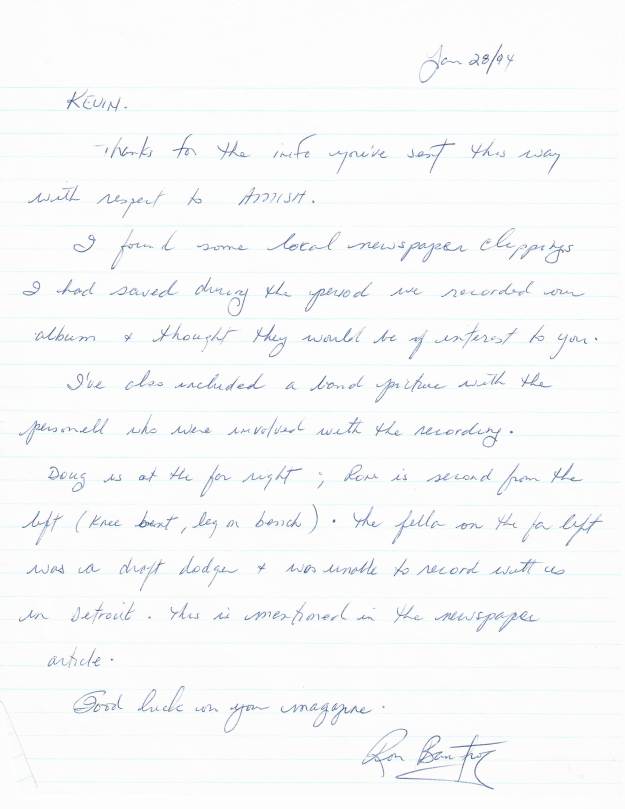 Jan 28/94
KEVIN.
Thanks for the info you've sent this way
with respect to AMISH.
I found some local newspaper clippings
I had saved during the period we recorded our
album & thought they would be of interest to you.
I've also included a band picture with the
personell who were involved with the recording.
Doug is at the far right ; Ron is second from the
left (knee bent, leg on bench). The fella on the far left
was a draft dodger & was unable to record with us
in Detroit. This is mentioned in the newspaper
article.
Good luck on your magazine.
Ron